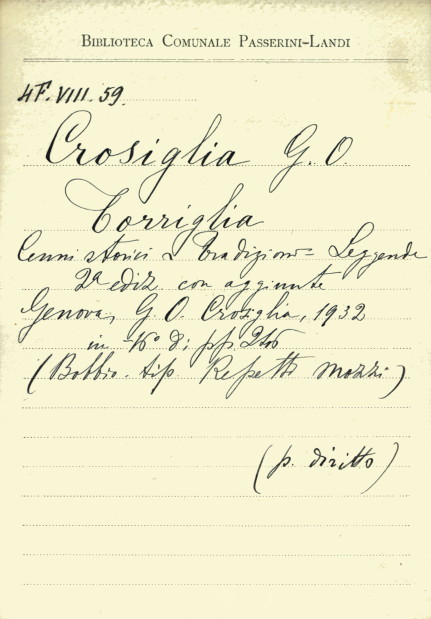 BIBLIOTECA COMUNALE PASSERINI-LANDI
4F. VIII. 59.
Crosiglia G. O.
Torriglia
Cenni storici - Tradizioni = Leggende
2ª ediz. con aggiunte
Genova, G. O. Crosiglia, 1932
in -16° di pp. 246
(Bobbio. tip. Repetti Mozzi)
(p. diritto)